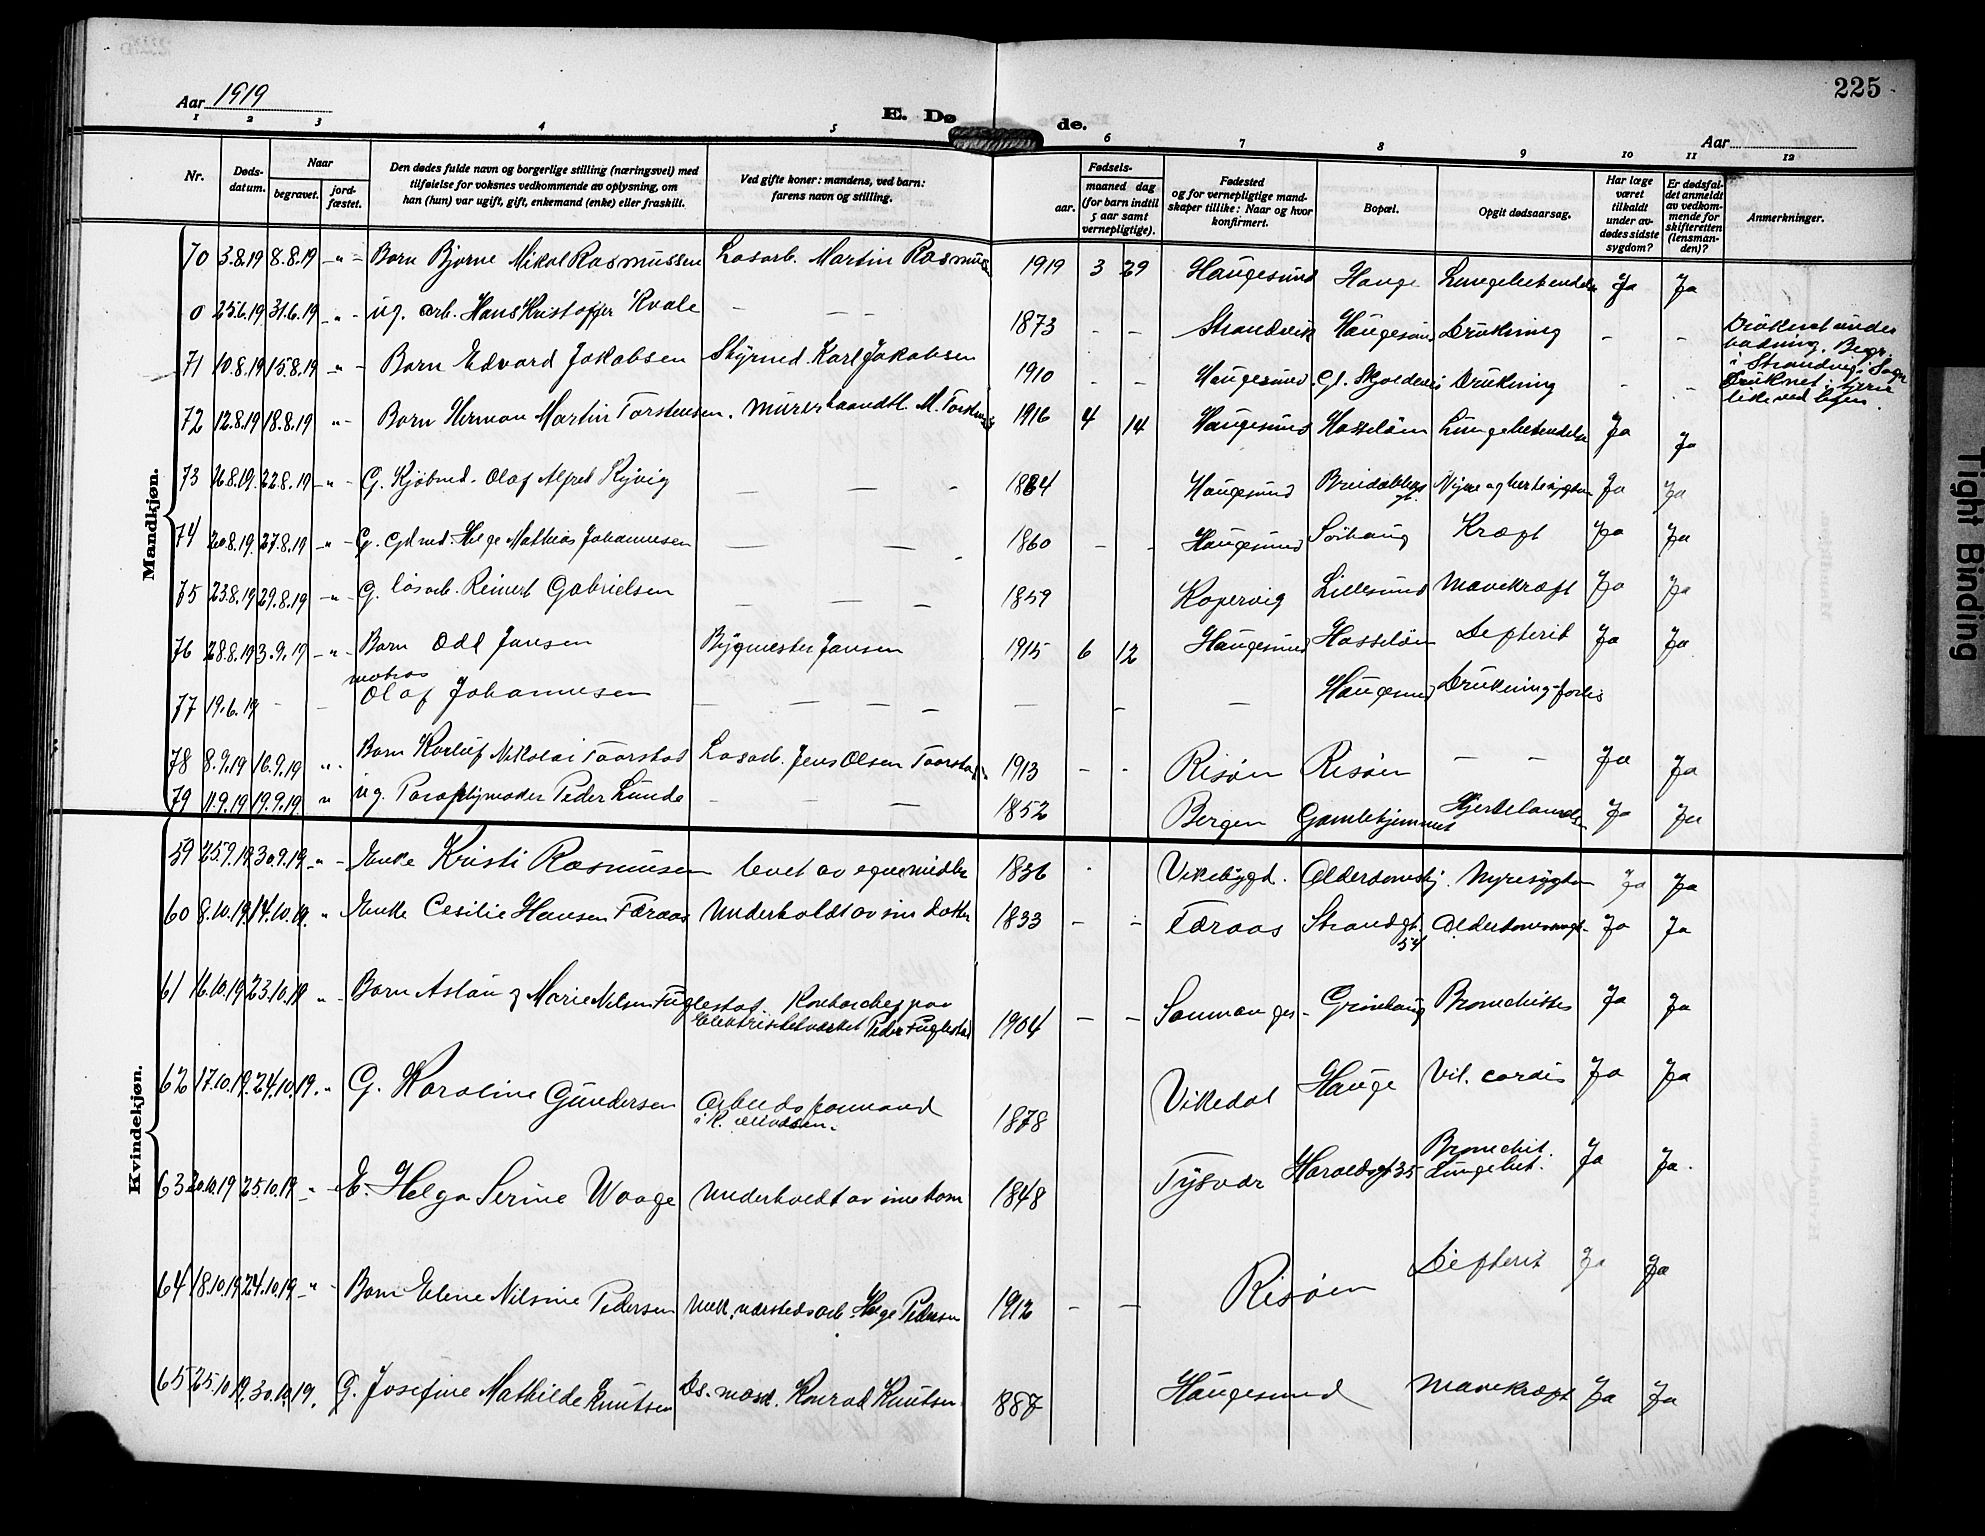 225
Aar 1919
E. Dø de.
Aar
1 2 3 4 5 6 7 8 9 10 11 12
Nr.
Døds-datum.
Naar
begravet.
jord-fæstet.
Den dødes fulde navn og borgerlige stilling (næringsvei) med
tilføielse for voksnes vedkommende av oplysning, om
han (hun) var ugift, gift, enkemand (enke) eller fraskilt.
Ved gifte koner: mandens, ved barn:
farens navn og stilling.
Fødsels-
aar.
maaned dag
(for barn indtil
5 aar samt
vernepligtige).
Fødested
og for vernepligtige mand-
skaper tillike: Naar og hvor
konfirmert.
Bopæl.
Opgit dødsaarsag.
Har læge
været
tilkaldt
under av-
dødes sidste
sygdom?
Er dødsfal-
det anmeldt
av vedkom-
mende for
skifteretten
(lensman-
den)?
Anmerkninger.
Mandkjøn.
70 3.8.19 8.8.19 -"- Barn Bjarne Mikal Rasmussen Løsarb. Martin Rasmus 1919 3 29 Haugesund Hauge Lungebetendelse Ja Ja
0 25.6.19 31.6.19 -"- ug. arb. Hans Kristoffer Kvale — — — 1873 - - Strandvik Haugesund Drukning - - Druknet under
badning. Begr.
i Strandvig i Sogn
71 10.8.19 15.8.19 -"- Barn Edvard Jakobsen Styrmd. Karl Jakobsen 1910 - - Haugesund Gl. Skjoldevei Drukning - - Druknet i
72 12.8.19 18.8.19 -"- Barn Herman Martin Torstensen. Murerhaandtl. M. Torstensen 1916 4 14 Haugesund Hasseløen Lungebetendelse Ja Ja
73 16.8.19. 22.8.19 -"- G. Kjøbmd. Olaf Alfred Ryvig — — - 1884 Haugesund Breidablikgt. Nyre og hertesygdom Ja Ja
74 20.8.19. 27.8.19 -"- G. Gdmd. Helge Mathias Johannesen — — - 1860 - - Haugesund Sørhaug Kræft Ja Ja
75 23.8.19 29.8.19 -"- G. løsarb. Reinert Gabrielsen — — — 1859 Kopervig Lillesund Mavekræft Ja Ja
76 28.8.19 3.9.19 -"- Barn Odd Jansen Bygmester Jansen 1915 6 12 Haugesund Hasseløen Defterit Ja Ja
77 19.6.19 - - matros
Olaf Johannesen — — — — — - — Haugesund Drukning-forlis
78 8.9.19 16.9.19 "- Barn Karluf Nikolai Taarstad Løsarb. Jens Olsen Taarstad 1913 - - Risøen Risøen — — Ja Ja
79 11.9.19 19.9.19 " ug. Paraplymager Peder Lunde - — — 1852 Bergen Gamlehjemmet Hjertelammelse Ja Ja
Kvindekjøn.
59 25.9.19 30.9.19 "- Enke Kristi Rasmussen levet av egne midler 1836 - Vikebygd. Alderdomshj. Nyresygdom Ja Ja
60 8.10.19 14.10.19. "- Enke Cesilie Hansen Færaas Underholdt av sin datter 1833 - - Færaas Strandgt.
54 Alderdomssvagh. Ja Ja
61 16.10.19 23.10.19 "- Barn Aslaug Marie Nilsen Fuglestad Kontorchef paa
Elektrisitetsverket Peder Fuglestad 1904 - - Samnanger - Grønhaug Bronchittes Ja Ja
62 17.10.19. 24.10.19. "- G. Karoline Gundersen Arbeidsformand 1878 Vikedal Hauge Vit. cordis Ja Ja
63 20.10.19 25.10.19 -"- E. Helga Serine Waage Underholdt av sine barn 1848 Tysvær Haraldsgt 35 Bronchit.
Lungebet. Ja Ja.
64 18.10.19 24.10.19 -"- Barn Elene Nilsine Pedersen Mek. verkstedsarb. Helge Pedersen 1912 - — Risøen Defterit Ja Ja
65 25.10.19. 30.10.19. G. Josefine Mathilde Knutsen Ds. mask. Konrad Knutsen 1887 Haugesund Mavekræft Ja Ja
Tight Binding